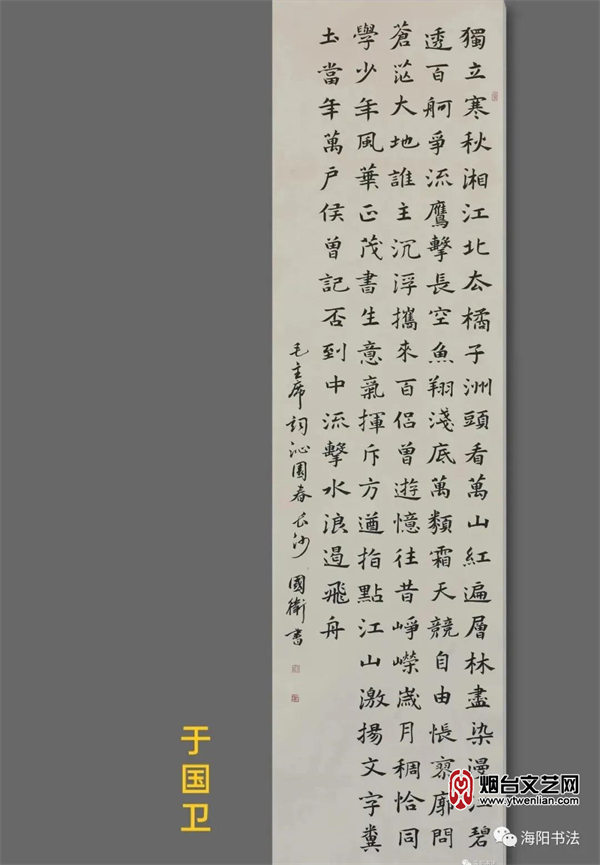 獨立寒秋湘江北去橘子洲頭看萬山紅遍層林盡染漫江碧
透百舸爭流鷹擊長空魚翔淺底萬類霜天競自由悵寥廓問
蒼茫大地誰主沉浮攜來百侶曾遊憶往昔崢嶸歲月稠恰同
學少年風華正茂書生意氣揮斥方遒指點江山激揚文字糞
土當年萬戶侯曾記否到中流擊水浪遏飛舟
毛主席詞沁園春长沙 國衛書
于国卫
烟台文艺网
www.ytwenlian.com
海阳书法